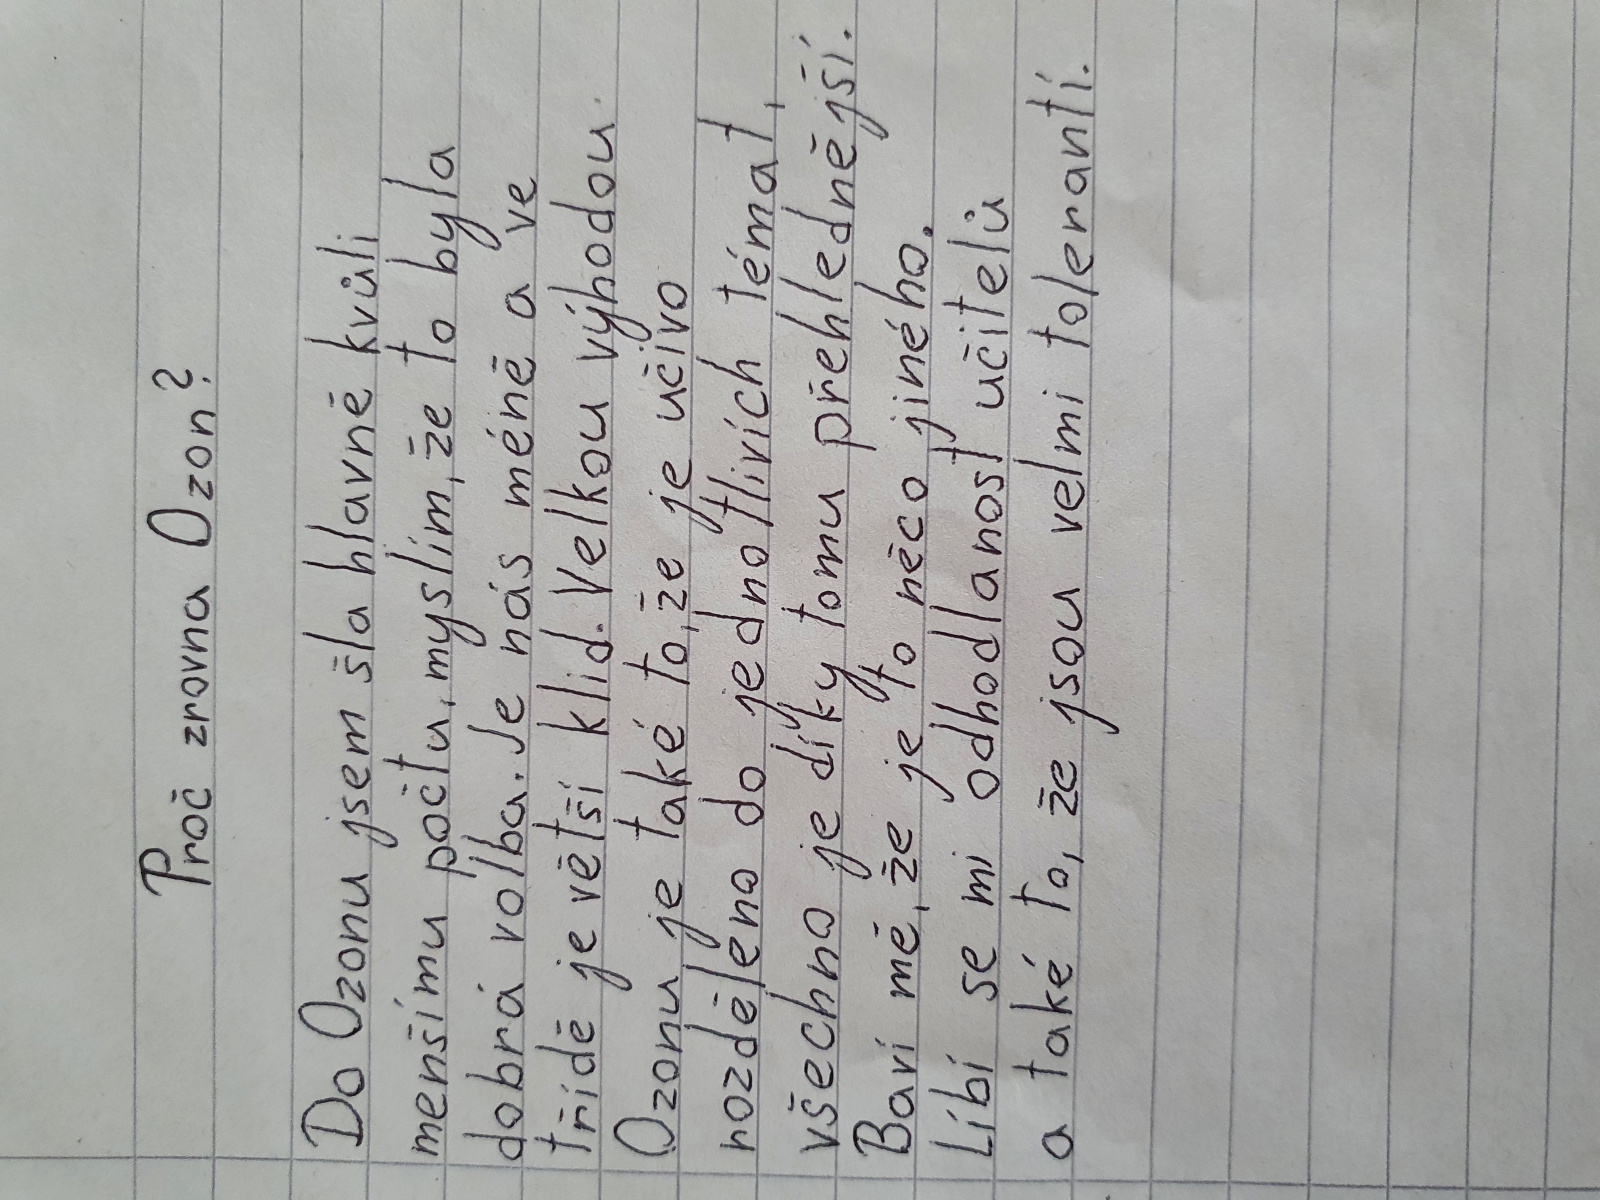 Proč zrovna Ozon?
Do Ozonu jsem šla hlavně kvůli
menšímu počtu, myslím, že to byla
dobrá volba. Je nás méně a ve
třídě je větší klid. Velkou výhodou
Ozonu je také to, že je učivo
rozděleno do jednotlivích témat,
všechno je díky tomu přehlednější.
Baví mě, že je to něco jiného.
Líbí se mi odhodlanost učitelů
a také to, že jsou velmi tolerantí.